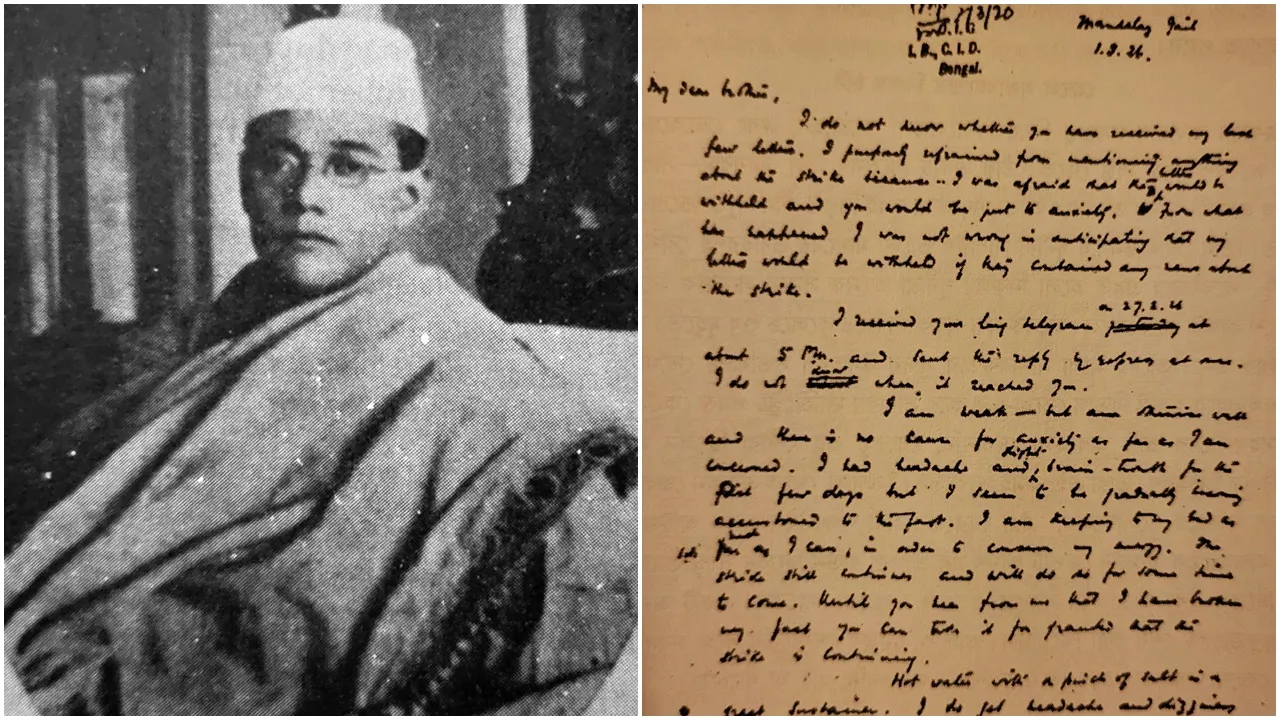 for D.I.G
I.B., C.I.D.
Bengal.
Mandalay Jail
1.3.26.
My dear brother,
I do not know whether you have received my last
few letters. I purposely refrained from mentioning anything
about the strike because - I was afraid that the letters would be
withheld and you would be put to anxiety. From what
has happened I was not wrong in anticipating that my
letters would be withheld if they contained any news about
the strike.
I received your long telegram yesterday on 27.2.26 at
about 5 P.M. and sent the reply by express at once.
I do not know when it reached you.
I am weak — but am otherwise well
and there is no cause for anxiety as far as I am
concerned. I had headache and slight brain-trouble for the
first few days but I seem to be gradually becoming
accustomed to the fast. I am keeping to my bed as
much as I can, in order to conserve my energy. The
strike still continues and will do so for some time
to come. Until you hear from me that I have broken
my fast you can take it for granted that the
strike is continuing.
Hot water with a pinch of salt is a
great sustainer. I do get headache and dizziness